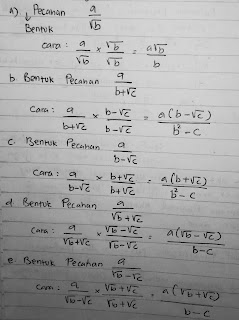 a) ↓ Pecahan a/√b
Bentuk
cara : a/√b × √b/√b = a√b/b
b. Bentuk Pecahan a/b+√c
Cara : a/b+√c × b-√c/b-√c = a(b-√c)/b²-c
c. Bentuk Pecahan a/b-√c
Cara : a/b-√c × b+√c/b+√c = a(b+√c)/b²-c
d. Bentuk Pecahan a/√b+√c
Cara : a/√b+√c × √b-√c/√b-√c = a(√b-√c)/b-c
e. Bentuk Pecahan a/√b-√c
Cara : a/√b-√c × √b+√c/√b+√c = a(√b+√c)/b-c